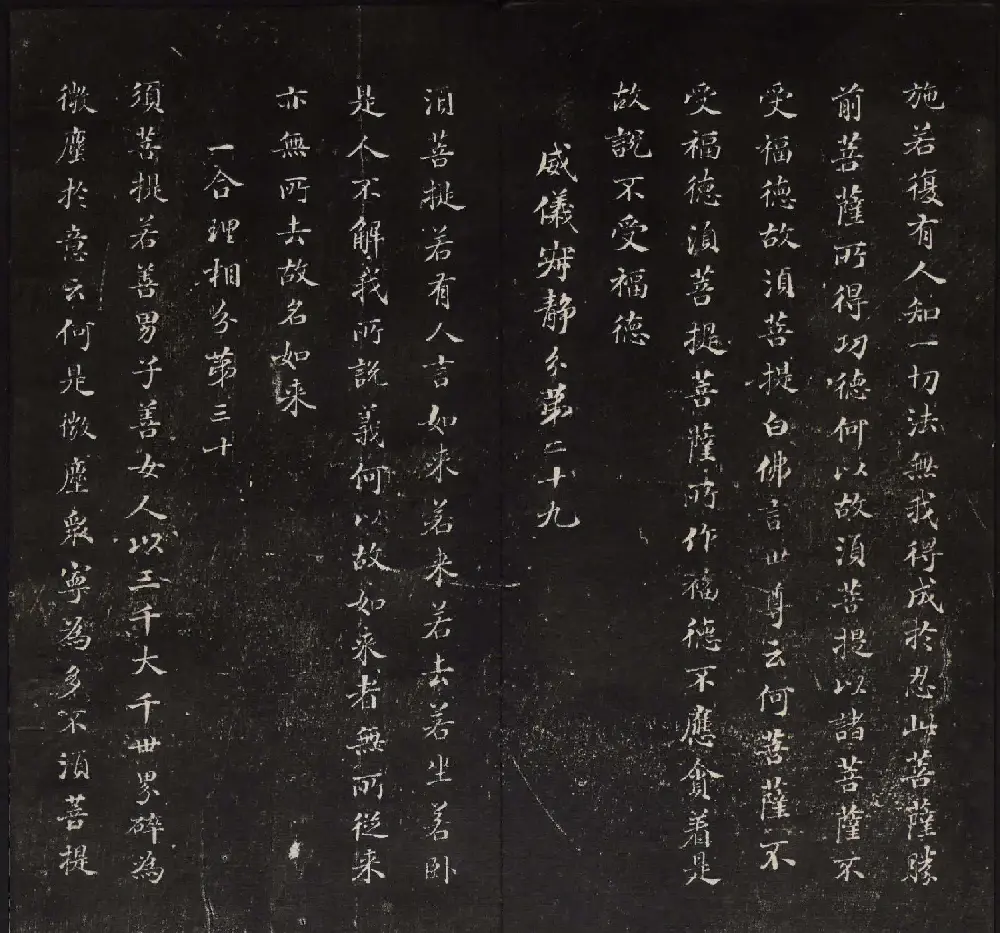 施若復有人知一切法無我得成於忍此菩薩勝
前菩薩所得功德何以故須菩提以諸菩薩不
受福德故須菩提白佛言世尊云何菩薩不
受福德須菩提菩薩所作福德不應貪着是
故說不受福德
威儀寂静分第二十九
須菩提若有人言如来若来若去若坐若卧
是人不解我所説義何以故如来者無所從来
亦無所去故名如来
一合理相分第三十
須菩提若善男子善女人以三千大千世界碎為
微塵於意云何是微塵衆寧為多不須菩提